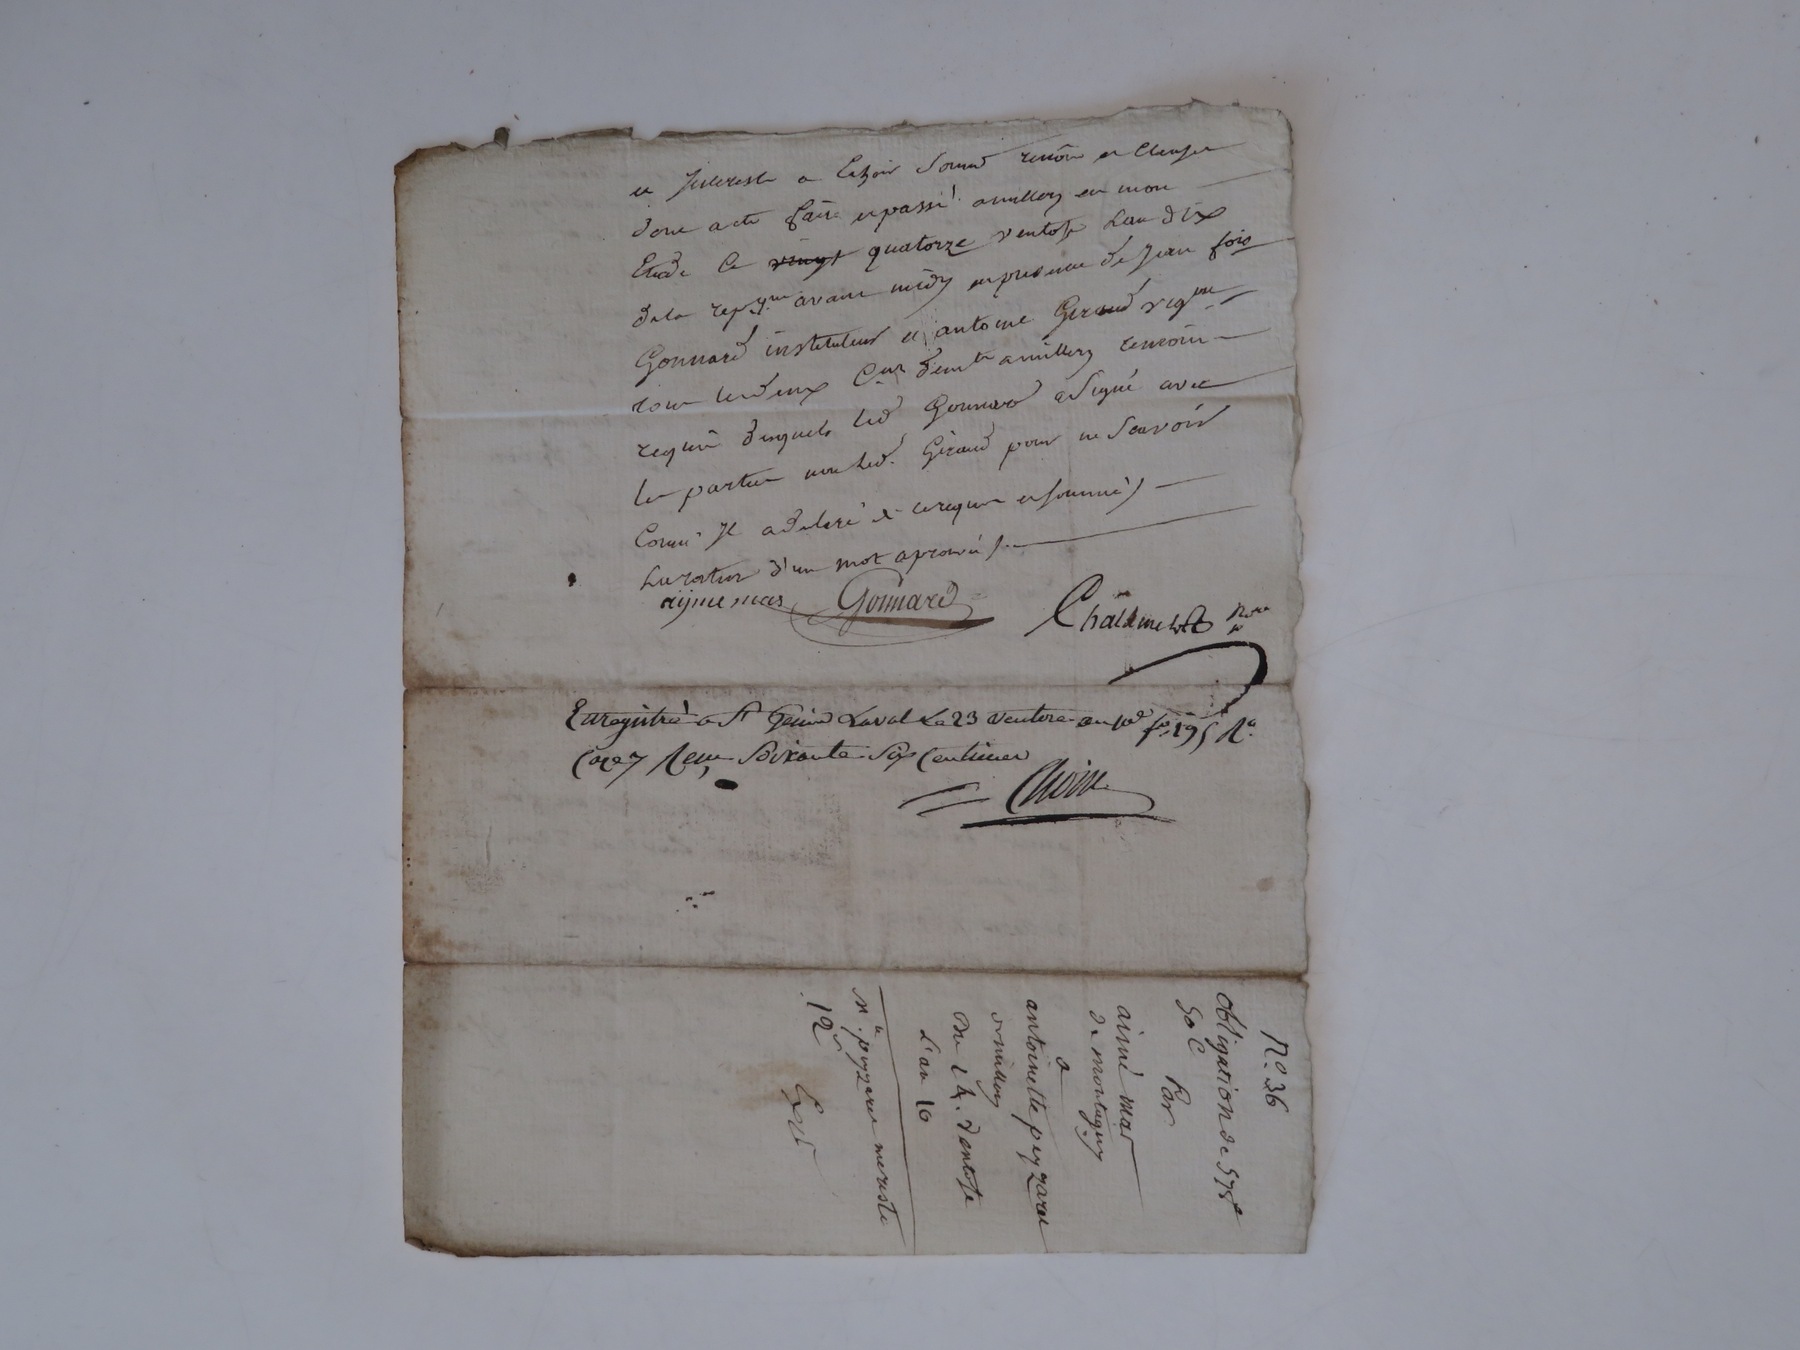 et Interest a Echoir soumé renōn et Clauses
dont acte fait et passé a millery en mon
Etude Le vingt quatorze ventose L'an dix
de la repque avant midy en presence de Jean fois
Gonnard instituteur et antoine Geraud vigon
tous les deux demt a millery temoins
requis desquels led Gonnard a signé avec
les parties non led. Géraud pour ne savoir
Comē Il a declaré de ce requis et sommé
La rature d'un mot aprouvée
ayme mas Gonnard Chalamel Nore
Enregistré a St Genis Laval Le 23 ventose an 10e fo. 195 Ro.
Case 7 Reçu Soixante Six Centimes
Choin
No. 36
obligation de 578#
50 C
Par
aimé mas
de montagny
a
antoinette peyzaret
a millery
du 14. Ventose
L'an 10